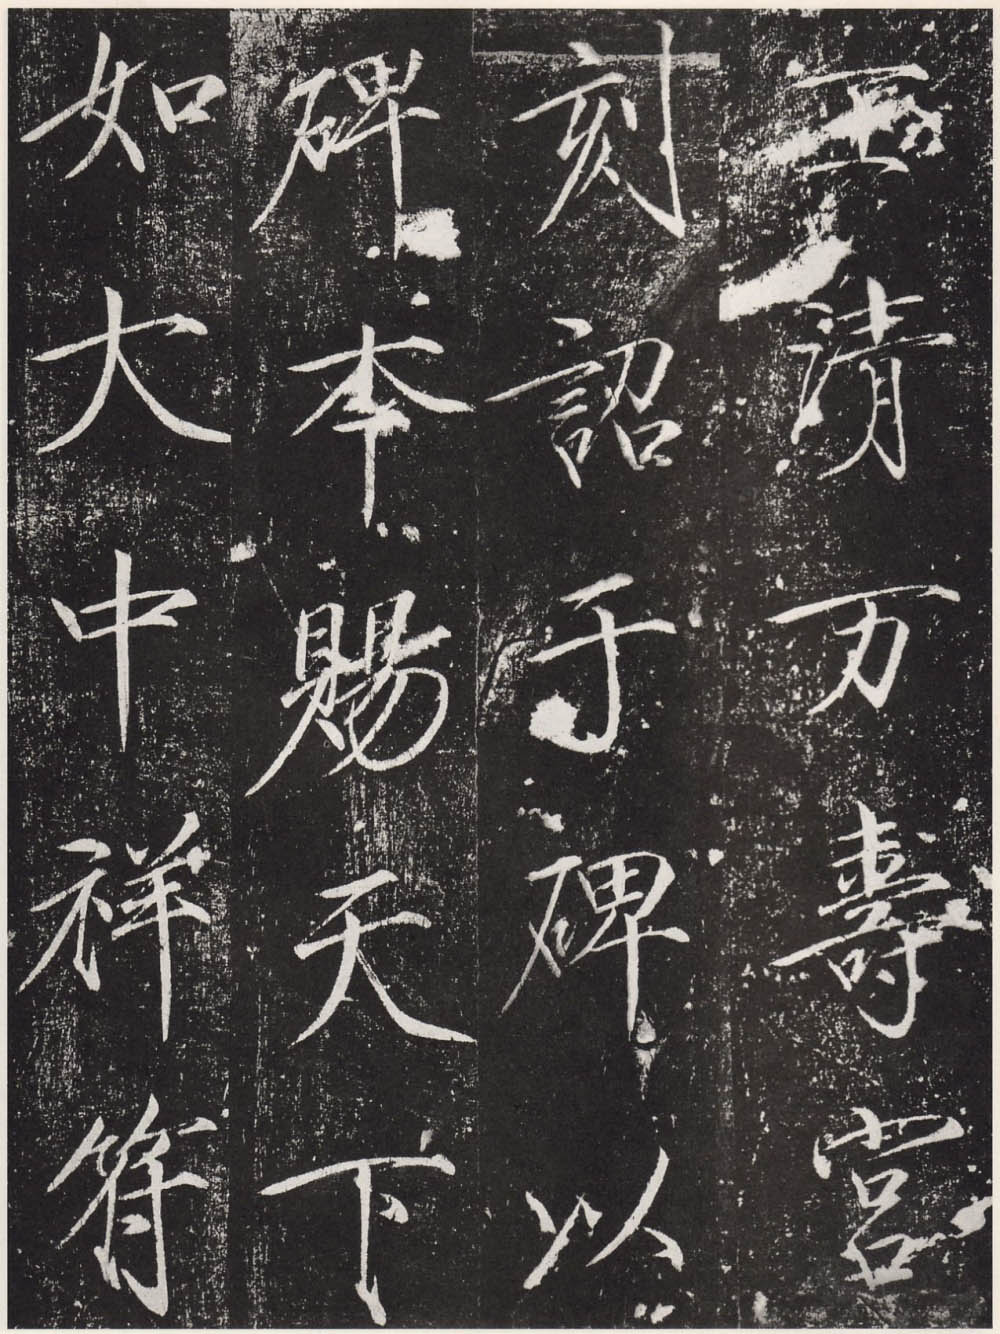 玉清万壽宮
刻詔于碑以
碑本賜天下
如大中祥符